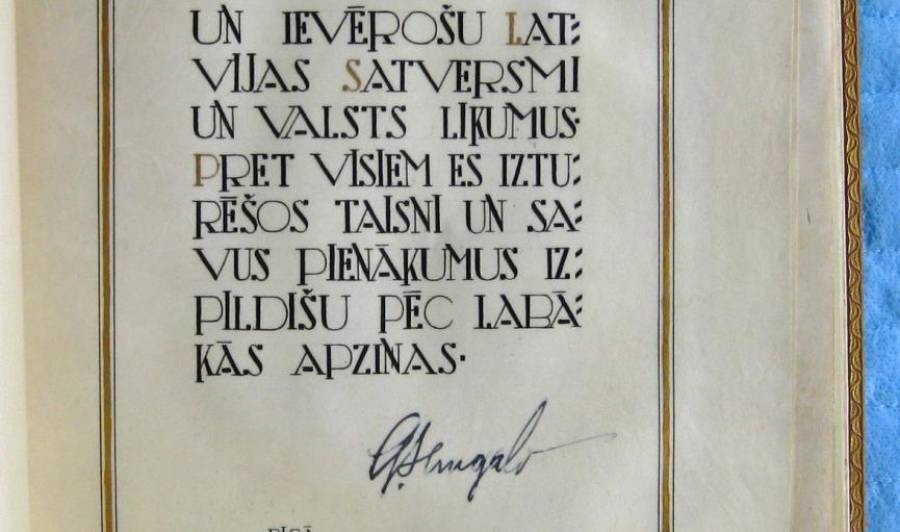 UN IEVĒROŠU LAT:
VIJAS SATVERSMI
UN VALSTS LIĶUMUS·
PRET VISIEM ES IZTU:
RĒŠOS TAISNI UN SA:
VUS PIENĀĶUMUS IZ:
PILDIŠU PĒC LABĀ:
ĶĀS APZIŅAS·
G. Zemgals
RĪGĀ